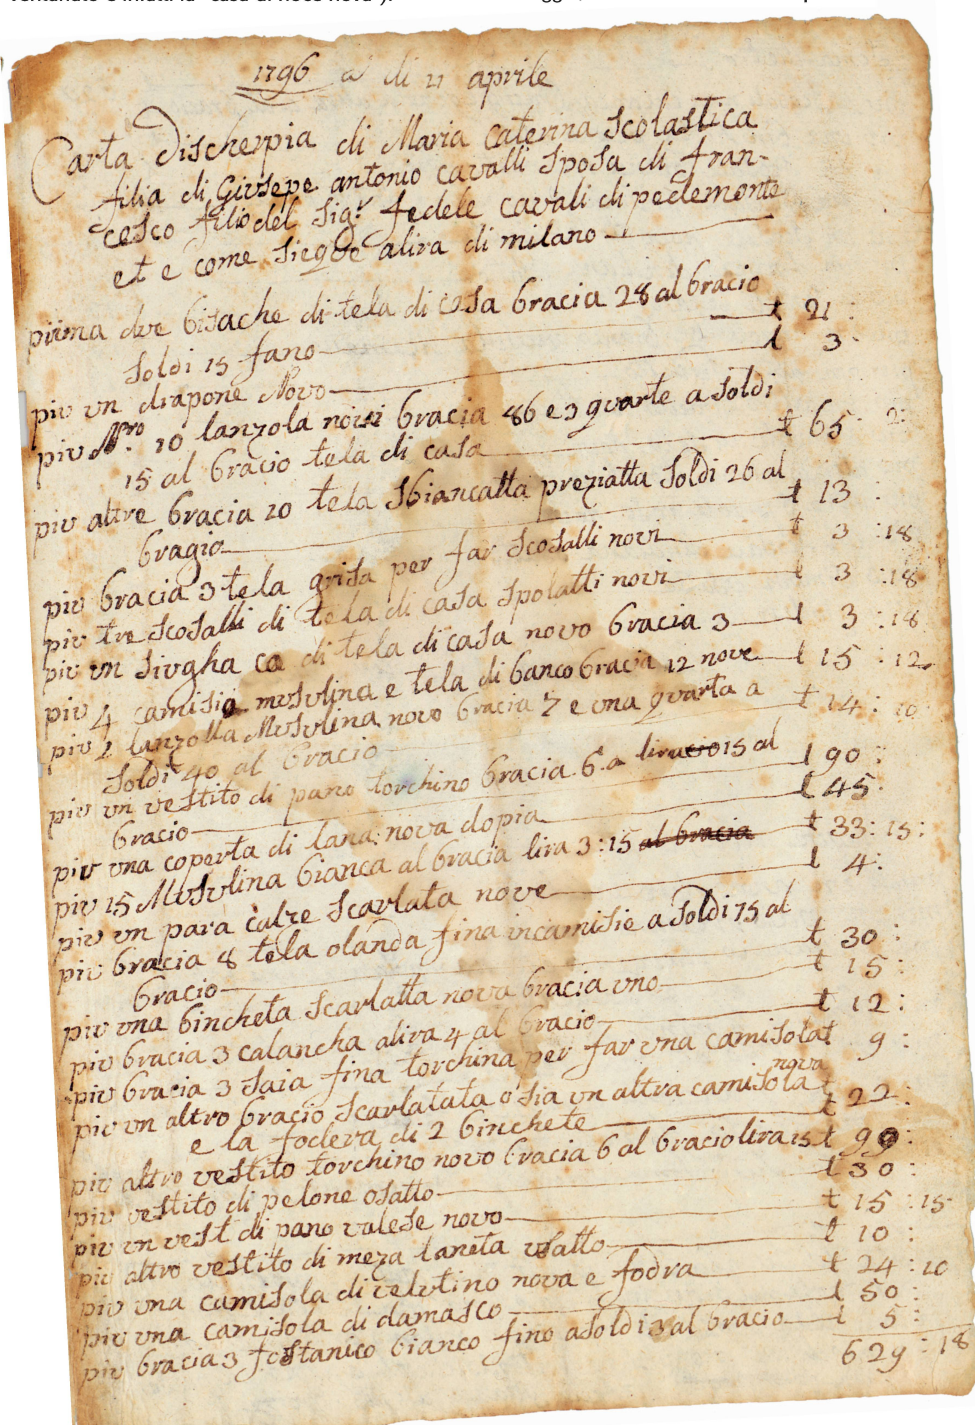 1796 a di 11 aprile
Carta Discherpia di Maria Caterina Scolastica
filia di Giusepe antonio cavalli sposa di fran-
cesco filio del Sig.r fedele cavali di pedemonte
et e come sieque alira di milano
prima due bisache di tela di casa bracia 28 al bracio
Soldi 15 fano t 21 :
piu un drapone Novo l 3 ·
piu Nro 10 lanzola novi bracia 86 e 3 quarte a Soldi
15 al bracio tela di casa t 65 · 2:
piu altre bracia 10 tela Sbiancatta preziatta Soldi 26 al
bragio t 13 :
piu bracia 3 tela grisa per far scosalli novi t 3 :18
piu tre scosalli di tela di casa spolatti novi l 3 :18
piu un siugha ca di tela di casa novo bracia 3 l 3 :18
piu 4 camisia musulina e tela di banco bracia 12 nove l 15 :12
piu 2 lanzolla Musulina novo bracia 7 e una quarta a
Soldi 40 al bracio t 14 : 10
piu un vestito di pano torchino bracia 6 a lira 15 al
bracio l 90 :
piu una coperta di lana nova dopia l 45 :
piu 15 Musulina bianca al bracia lira 3:15 al bracia t 33: 15:
piu un para calze scarlata nove l 4:
piu bracia 8 tela olanda fina in camisie a Soldi 75 al
bracio t 30 :
piu una bincheta scarlatta nova bracia uno t 15 :
piu bracia 3 calancha alira 4 al bracio t 12 :
piu bracia 3 saia fina torchina per far una camisola t 9 :
piu un altro bracio scarlatata o sia un altra camisola nova
e la fodera di 2 binchete t 22 :
piu altro vestito torchino novo bracia 6 al bracio lira 15 t 90 :
piu vestito di pelone osatto t 30 :
piu un vest di pano valese novo t 15 : 15
piu altro vestito di meza laneta usatto t 10 :
piu una camisola di velutino nova e fodra t 24 : 10
piu una camisola di damasco l 50 :
piu bracia 3 fostanico bianco fino a Soldi 3 al bracio l 5 :
629 : 18